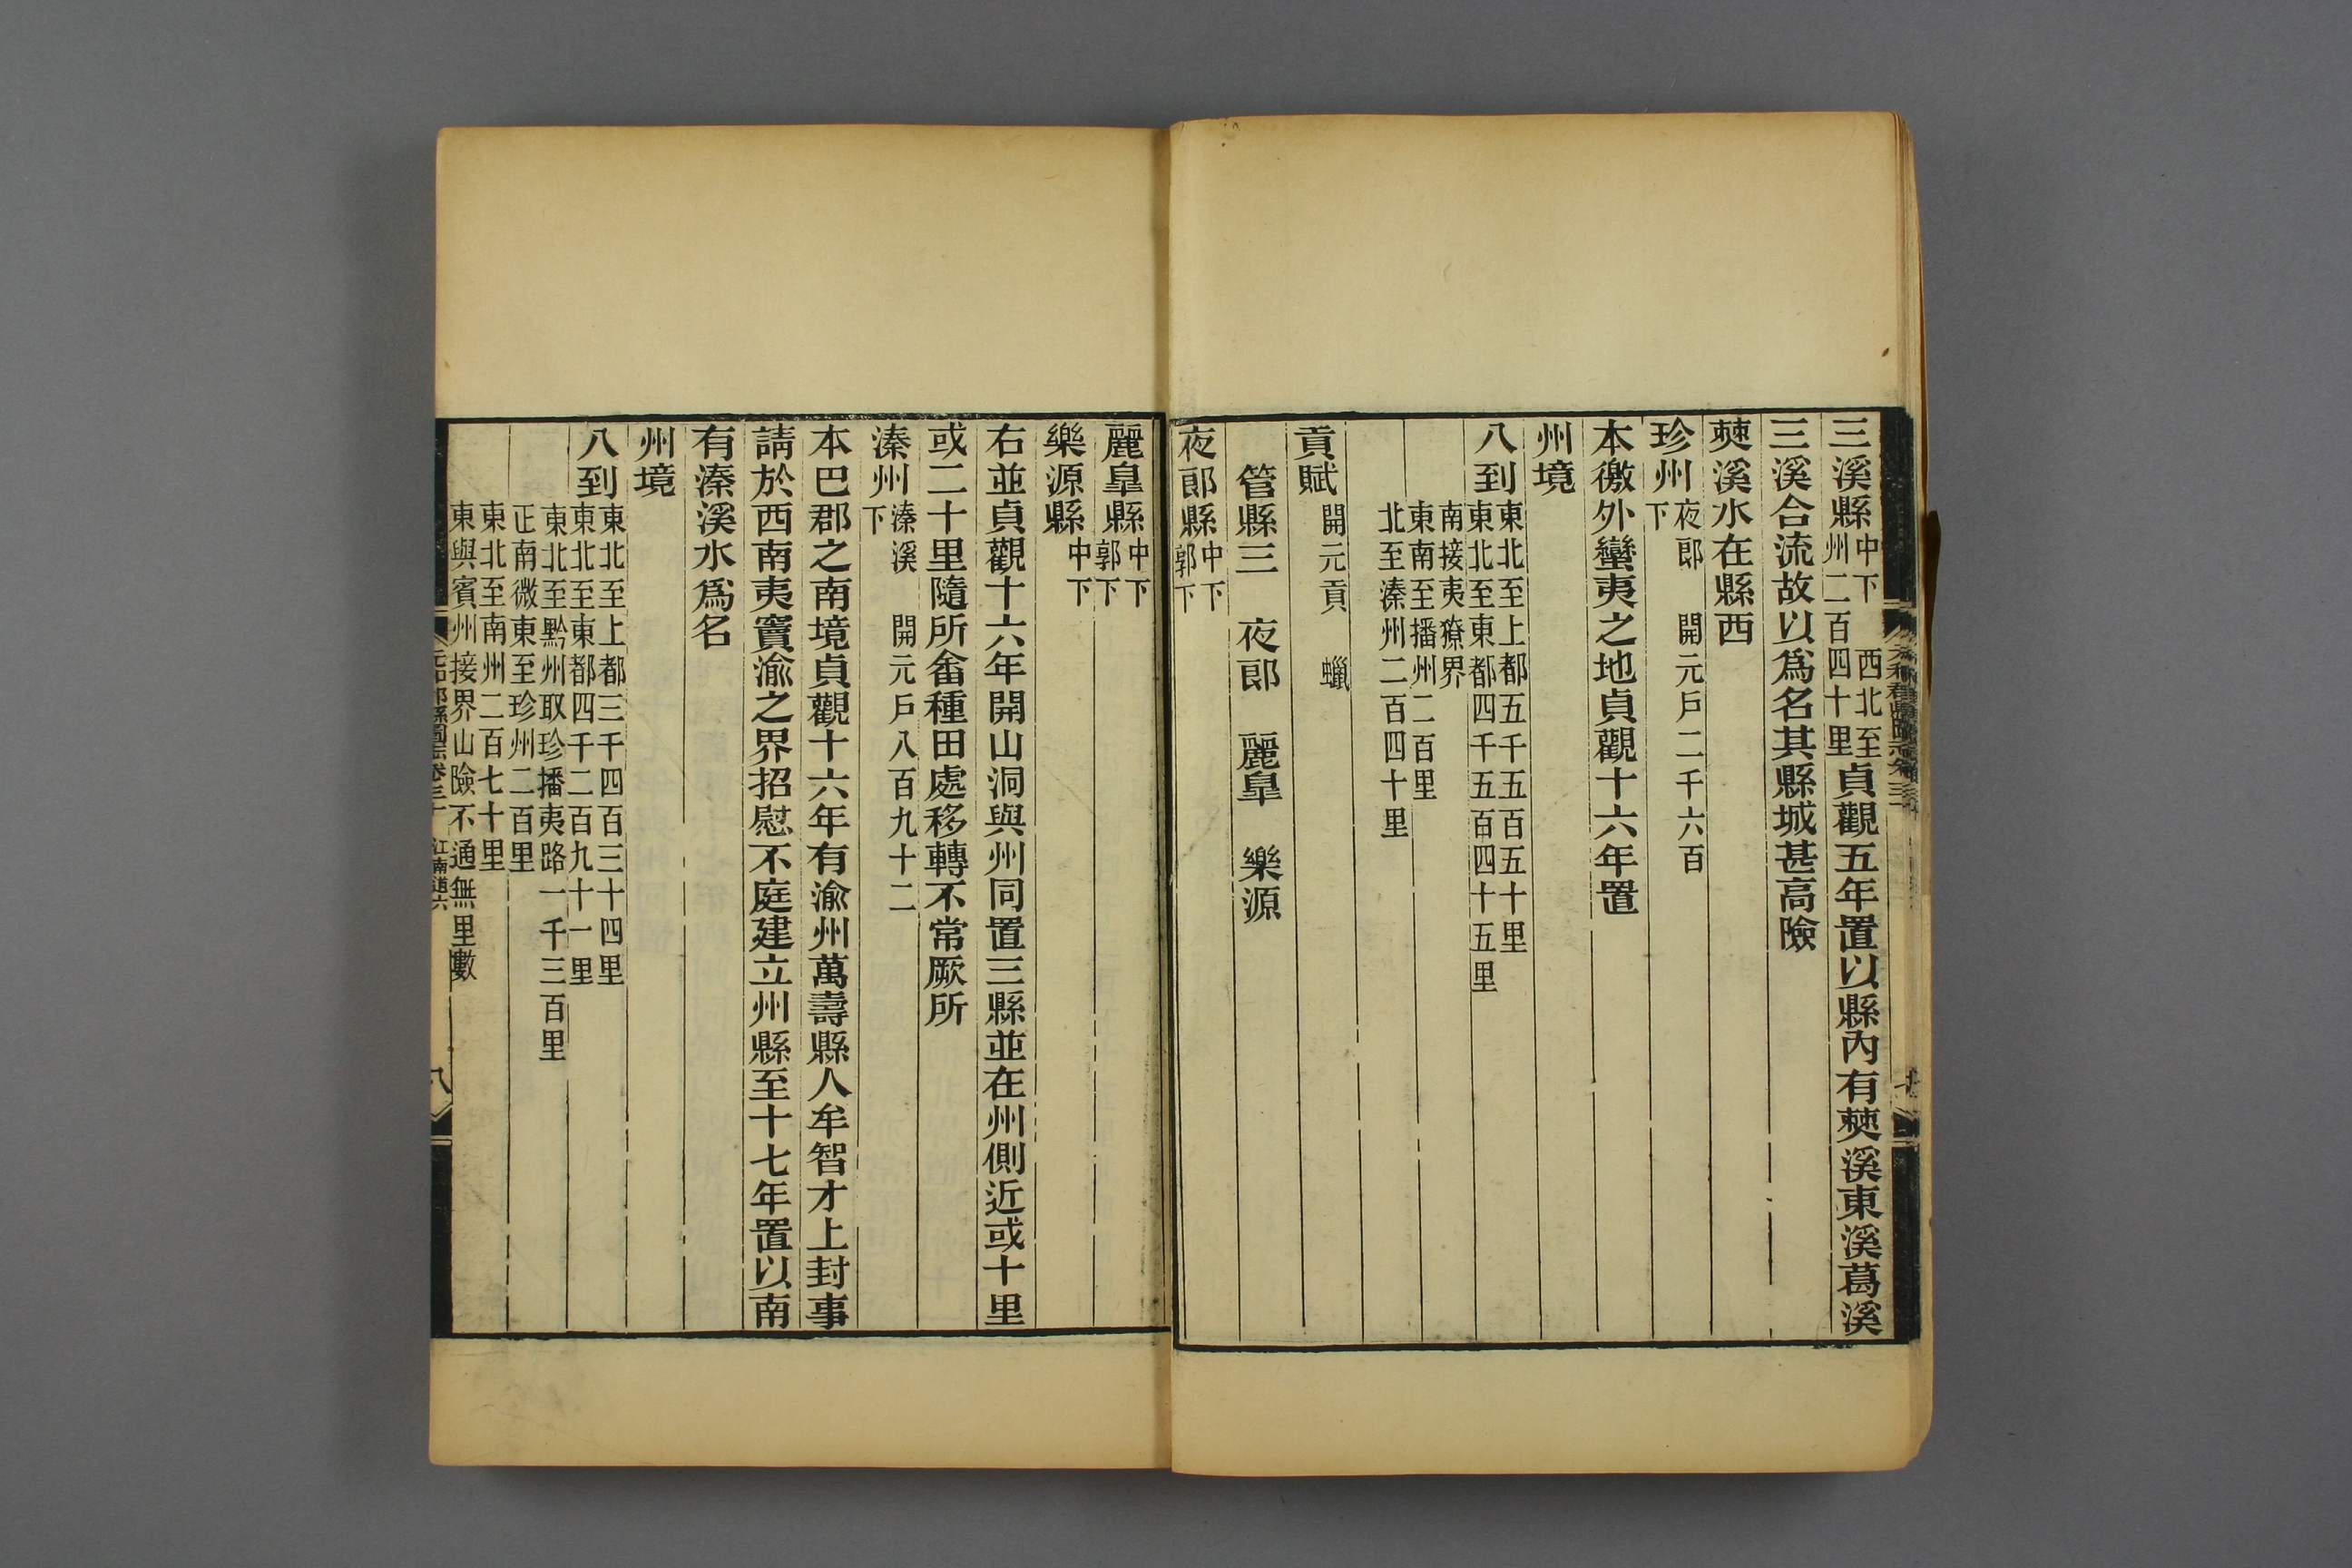 三溪縣中下 西北至州二百四十里貞觀五年置以縣內有僰溪東溪葛溪
三溪合流故以爲名其縣城甚高險
僰溪水在縣西
珍州夜郎 開元戶二千六百下
本徼外蠻夷之地貞觀十六年置
州境
八到東北至上都五千五百五十里東北至東都四千五百四十五里
南接夷獠界東南至播州二百里
北至溱州二百四十里
貢賦開元貢 蠟
管縣三 夜郎 麗臯 樂源
夜郎縣中下郭下
麗臯縣中下郭下
樂源縣中下
右並貞觀十六年開山洞與州同置三縣並在州側近或十里
或二十里隨所畬種田處移轉不常厥所
溱州溱溪 開元戶八百九十二下
本巴郡之南境貞觀十六年有渝州萬壽縣人牟智才上封事
請於西南夷竇渝之界招慰不庭建立州縣至十七年置以南
有溱溪水爲名
州境
八到東北至上都三千四百三十四里東北至東都四千二百九十一里
東北至黔州取珍播夷路一千三百里正南微東至珍州二百里
東北至南州二百七十里東與賓州接界山險不通無里數
元和郡縣圖志卷三十 江南道六
八